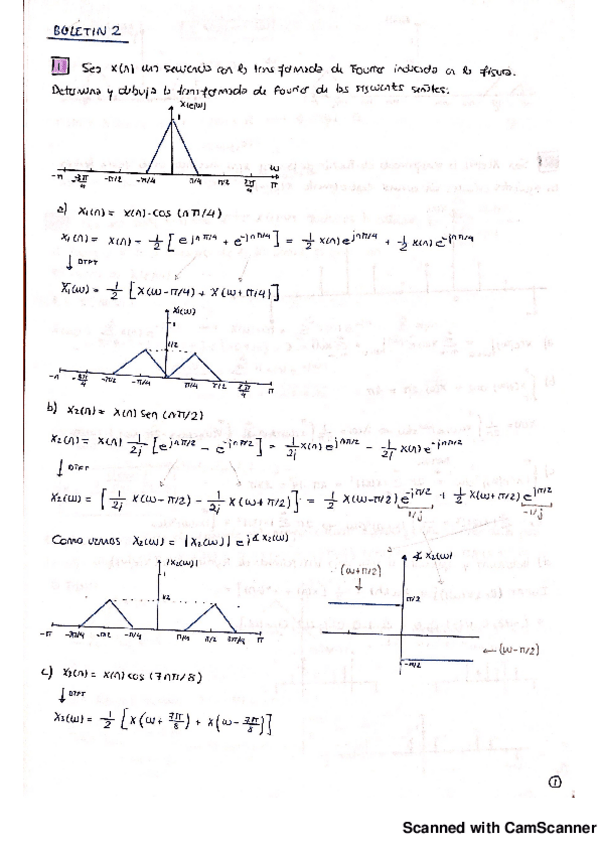 BOLETIN 2
1 Sea x(n) una secuencia con la transformada de Fourier indicada en la figura.
Determina y dibuja la transformada de Fourier de las siguientes señales:
X(e(ω)
1
-π -3π/4 -π/2 -π/4 π/4 π/2 3π/4 π ω
a) x₁(n) = x(n)·cos(nπ/4)
x₁(n) = x(n) - 1/2 [e^jnπ/4 + e^-jnπ/4] = 1/2 x(n) e^jnπ/4 + 1/2 x(n) e^-jnπ/4
↓ DTFT
X₁(ω) = 1/2 [X(ω-π/4) + X(ω+π/4)]
X₁(ω)
1
1/2
-π -3π/4 -π/2 -π/4 π/4 π/2 3π/4 π
b) x₂(n) = x(n) sen(nπ/2)
x₂(n) = x(n) 1/2j [e^jnπ/2 - e^-jnπ/2] = 1/2j x(n) e^jnπ/2 - 1/2j x(n) e^-jnπ/2
↓ DTFT
X₂(ω) = [1/2j X(ω-π/2) - 1/2j X(ω+π/2)] = 1/2 X(ω-π/2) e^-jπ/2 + 1/2 X(ω+π/2) e^jπ/2
1/j -1/j
Como vemos X₂(ω) = |X₂(ω)| e^j∡X₂(ω)
|X₂(ω)|
1/2
-π -3π/4 -π/2 -π/4 π/4 π/2 3π/4 π
∡ X₂(ω)
(ω+π/2)
π/2
(ω-π/2)
-π/2
c) x₃(n) = x(n) cos(7nπ/8)
↓ DTFT
X₃(ω) = 1/2 [X(ω + 7π/8) + X(ω - 7π/8)]
1
Scanned with CamScanner